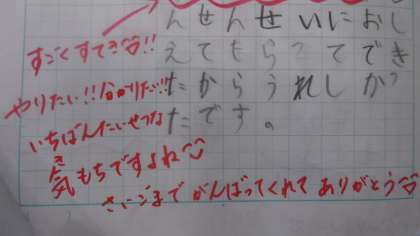 んせんせいにおし
えてもらってでき
たからうれしかっ
たです。
すごくすてき!!
やりたい!!
いちばんたいせつな
気もちですよね
き
さいごまでがんばってくれてありがとう